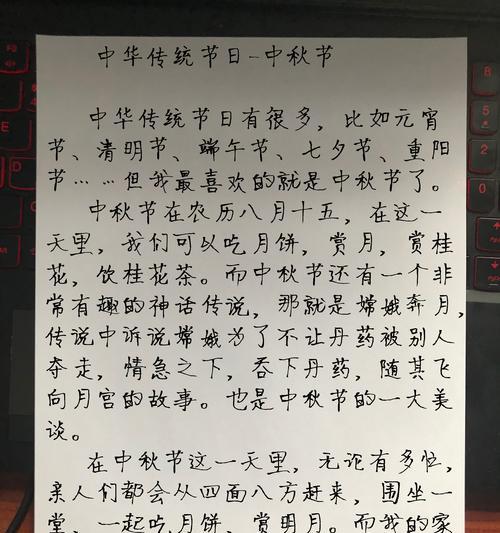 中华传统节日-中秋节
中华传统节日有很多，比如元宵
节、清明节、端午节、七夕节、重阳
节……但我最喜欢的就是中秋节了。
中秋节在农历八月十五，在这一
天里，我们可以吃月饼，赏月，赏桂
花，饮桂花茶。而中秋节还有一个非
常有趣的神话传说，那就是嫦娥奔月，
传说中诉说嫦娥为了不让丹药被别人
夺走，情急之下，吞下丹药，随其飞
向月宫的故事。也是中秋节的一大美
谈。
在中秋节这一天里，无论有多忙，
亲人们都会从四面八方赶来，围坐一
堂，一起吃月饼、赏明月。而我的家